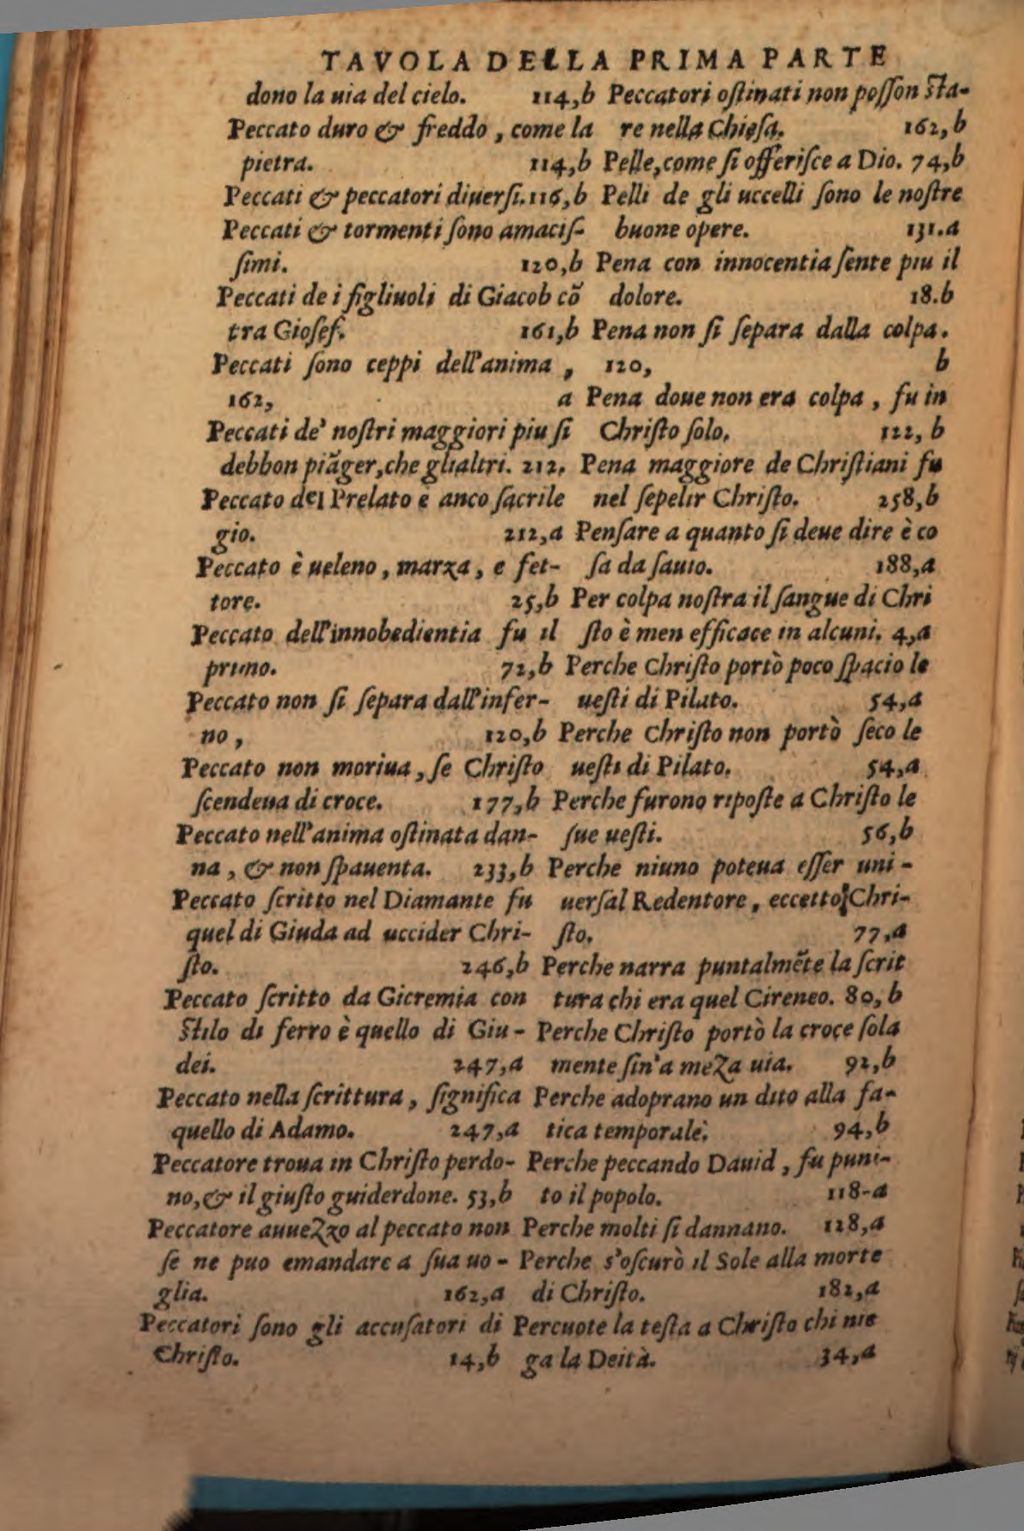 TAVOLA DELLA PRIMA PARTE
dono la uia del cielo. 114,b
Peccato duro & freddo, come la
pietra. 114,b
Peccati & peccatori diuerſi. 116,b
Peccati & tormenti ſono amaciſ-
ſimi. 120,b
Peccati de i figliuoli di Giacob cõ
tra Gioſef. 161,b
Peccati ſono ceppi dell'anima,
162, a
Peccati de' noſtri maggiori piu ſi
debbon piãger, che glialtri. 212.
Peccato del Prelato è anco ſacrile
gio. 212,a
Peccato è ueleno, marza, e fet-
tore. 25,b
Peccato dell'innobedientia fu il
primo. 72,b
Peccato non ſi ſepara dall'infer-
no, 120,b
Peccato non moriua, ſe Chriſto
ſcendeua di croce. 177,b
Peccato nell'anima oſtinata dan-
na, & non ſpauenta. 233,b
Peccato ſcritto nel Diamante fu
quel di Giuda ad uccider Chri-
ſto. 246,b
Peccato ſcritto da Gieremia con
ſtilo di ferro è quello di Giu-
dei. 247,a
Peccato nella ſcrittura, ſignifica
quello di Adamo. 247,a
Peccatore troua in Chriſto perdo-
no, & il giuſto guiderdone. 53,b
Peccatore auuezzo al peccato non
ſe ne puo emandare a ſua uo-
glia. 162,a
Peccatori ſono gli accuſatori di
Chriſto. 14,b
Peccatori oſtinati non poſſon ſta-
re nella Chieſa. 162,b
Pelle, come ſi offeriſce a Dio. 74,b
Pelli de gli uccelli ſono le noſtre
buone opere. 131.a
Pena con innocentia ſente piu il
dolore. 18.b
Pena non ſi ſepara dalla colpa.
120, b
Pena doue non era colpa, fu in
Chriſto ſolo. 122, b
Pena maggiore de Chriſtiani fu
nel ſepelir Chriſto. 258,b
Penſare a quanto ſi deue dire è co
ſa da ſauio. 188,a
Per colpa noſtra il ſangue di Chri
ſto è men efficace in alcuni. 4,a
Perche Chriſto portò poco ſpacio le
ueſti di Pilato. 54,a
Perche Chriſto non portò ſeco le
ueſti di Pilato. 54,a
Perche furono ripoſte a Chriſto le
ſue ueſti. 56,b
Perche niuno poteua eſſer uni-
uerſal Redentore, eccetto Chri-
ſto. 77,a
Perche narra puntalmẽte la ſcrit
tura chi era quel Cireneo. 80,b
Perche Chriſto portò la croce ſola
mente ſin'a meza uia. 92,b
Perche adoprano un dito alla fa-
tica temporale. 94,b
Perche peccando Dauid, fu puni-
to il popolo. 118-a
Perche molti ſi dannano. 128,a
Perche s'oſcurò il Sole alla morte
di Chriſto. 182,a
Percuote la teſta a Chriſto chi nie
ga la Deità. 34,a